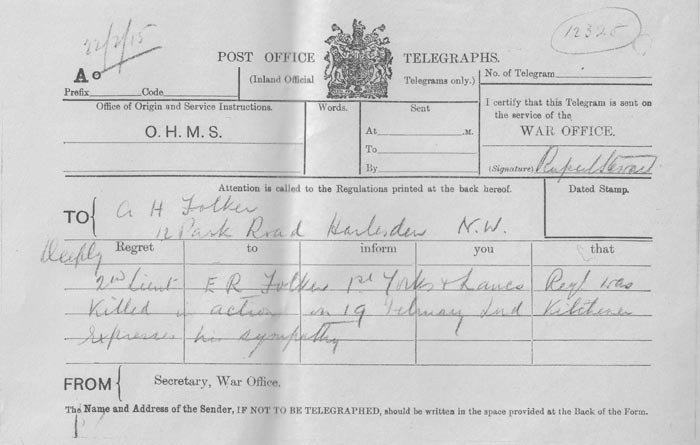 22/2/15
12325
POST OFFICE TELEGRAPHS.
A
(Inland Official Telegrams only.)
No. of Telegram
Prefix Code
Office of Origin and Service Instructions.
Words.
Sent
O.H.M.S.
At M.
To
By
I certify that this Telegram is sent on
the service of the
WAR OFFICE.
(Signature)
Attention is called to the Regulations printed at the back hereof.
Dated Stamp.
TO { A H Folker
12 Park Road Harlesden N.W.
Deeply Regret to inform you that
2nd Lieut E R Folker 1st Yorks & Lancs Regt was
Killed in action on 19 February Lord Kitchener
expresses his sympathy
FROM { Secretary, War Office.
The Name and Address of the Sender, IF NOT TO BE TELEGRAPHED, should be written in the space provided at the Back of the Form.